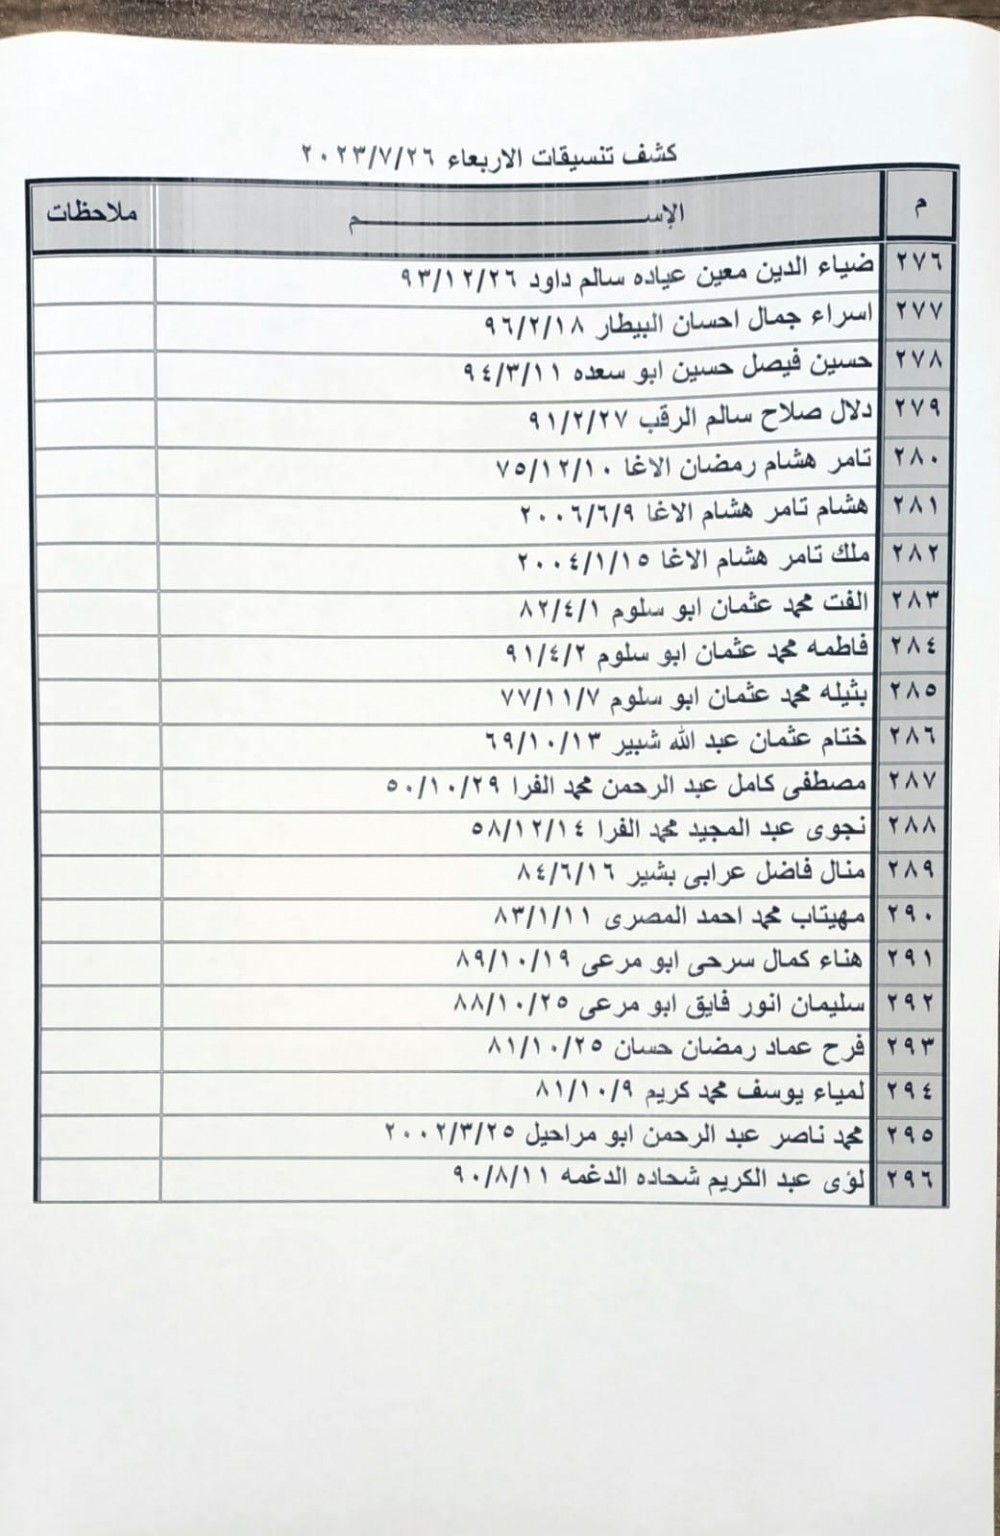 كشف تنسيقات الاربعاء ٢٠٢٣/٧/٢٦
م الإســــــــم ملاحظات
٢٧٦ ضياء الدين معين عياده سالم داود ٩٣/١٢/٢٦
٢٧٧ اسراء جمال احسان البيطار ٩٦/٢/١٨
٢٧٨ حسين فيصل حسين ابو سعده ٩٤/٣/١١
٢٧٩ دلال صلاح سالم الرقب ٩١/٢/٢٧
٢٨٠ تامر هشام رمضان الاغا ٧٥/١٢/١٠
٢٨١ هشام تامر هشام الاغا ٢٠٠٦/٦/٩
٢٨٢ ملك تامر هشام الاغا ٢٠٠٤/١/١٥
٢٨٣ الفت محمد عثمان ابو سلوم ٨٢/٤/١
٢٨٤ فاطمه محمد عثمان ابو سلوم ٩١/٤/٢
٢٨٥ بثيله محمد عثمان ابو سلوم ٧٧/١١/٧
٢٨٦ ختام عثمان عبد الله شبير ٦٩/١٠/١٣
٢٨٧ مصطفى كامل عبد الرحمن محمد الفرا ٥٠/١٠/٢٩
٢٨٨ نجوى عبد المجيد محمد الفرا ٥٨/١٢/١٤
٢٨٩ منال فاضل عرابى بشير ٨٤/٦/١٦
٢٩٠ مهيتاب محمد احمد المصرى ٨٣/١/١١
٢٩١ هناء كمال سرحى ابو مرعى ٨٩/١٠/١٩
٢٩٢ سليمان انور فايق ابو مرعى ٨٨/١٠/٢٥
٢٩٣ فرح عماد رمضان حسان ٨١/١٠/٢٥
٢٩٤ لمياء يوسف محمد كريم ٨١/١٠/٩
٢٩٥ محمد ناصر عبد الرحمن ابو مراحيل ٢٠٠٢/٣/٢٥
٢٩٦ لؤى عبد الكريم شحاده الدغمه ٩٠/٨/١١